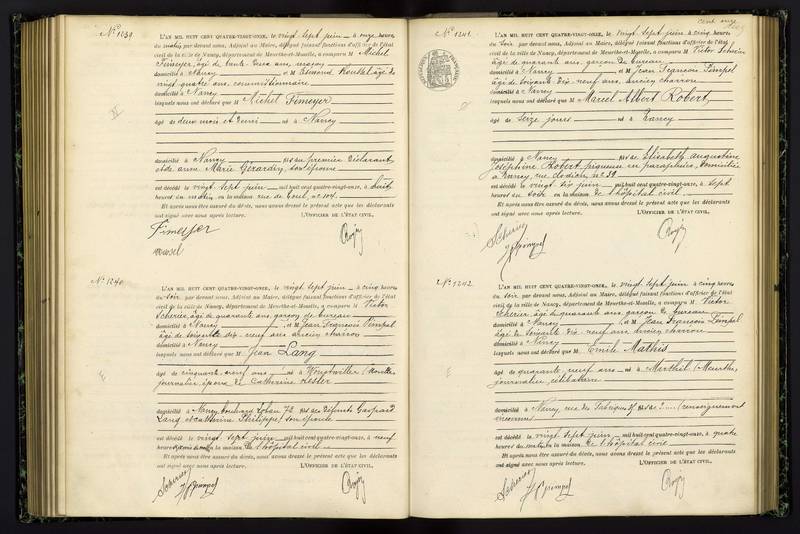 N° 1239
L'AN MIL HUIT CENT QUATRE-VINGT-ONZE, le vingt sept juin à onze heures
du matin par devant nous, Adjoint au Maire, délégué faisant fonctions d'officier de l'état
civil de la ville de Nancy, département de Meurthe-et-Moselle, a comparu M Michel
Fimeyer, âgé de trente ans, maçon
domicilié à Nancy et M Edmond âgé de
vingt quatre ans, commissionnaire
domicilié à Nancy
lesquels nous ont déclaré que M Michel Fimeyer
âgé de deux mois et demi né à Nancy
domicilié à Nancy fils du premier déclarant
et de Anne Marie Gérardin, son épouse
est décédé le vingt sept juin mil huit cent quatre-vingt-onze, à huit
heures du matin, en la maison rue de Toul, n° 104.
Et après nous être assuré du décès, nous avons dressé le présent acte que les déclarants
ont signé avec nous après lecture. L'OFFICIER DE L'ÉTAT CIVIL,
Fimeyer
N° 1240
L'AN MIL HUIT CENT QUATRE-VINGT-ONZE, le vingt sept juin à cinq heures
du soir par devant nous, Adjoint au Maire, délégué faisant fonctions d'officier de l'état
civil de la ville de Nancy, département de Meurthe-et-Moselle, a comparu M Victor
Scherier, âgé de quarante ans, garçon de bureau
domicilié à Nancy, et M Jean François
âgé de soixante dix neuf ans ancien charron
domicilié à Nancy
lesquels nous ont déclaré que M Jean Lang
âgé de cinquante neuf ans né à
journalier, époux de Catherine Kesler
domicilié à Nancy, boulevard Lobau 72 fils des défunts Gaspard
Lang et Catherine Philippe, son épouse
est décédé le vingt sept juin mil huit cent quatre-vingt-onze, à neuf
heures du matin en la maison de l'hôpital civil
Et après nous être assuré du décès, nous avons dressé le présent acte que les déclarants
ont signé avec nous après lecture. L'OFFICIER DE L'ÉTAT CIVIL,
Scherier
cent onze
N° 1241
L'AN MIL HUIT CENT QUATRE-VINGT-ONZE, le vingt sept juin à cinq heures
du soir par devant nous, Adjoint au Maire, délégué faisant fonctions d'officier de l'état
civil de la ville de Nancy, département de Meurthe-et-Moselle, a comparu M Victor Scherier
âgé de quarante ans, garçon de bureau
domicilié à Nancy et M Jean François
âgé de soixante dix neuf ans, ancien charron
domicilié à Nancy
lesquels nous ont déclaré que M Marcel Albert Robert
âgé de seize jours né à Nancy
domicilié à Nancy fils de Elisabeth Augustine
Joséphine Robert, piqueuse en parapluies, domiciliée
à Nancy, rue Clodion n° 39
est décédé le vingt six juin mil huit cent quatre-vingt-onze, à sept
heures du soir en la maison de l'hôpital civil
Et après nous être assuré du décès, nous avons dressé le présent acte que les déclarants
ont signé avec nous après lecture. L'OFFICIER DE L'ÉTAT CIVIL,
Scherier
N° 1242
L'AN MIL HUIT CENT QUATRE-VINGT-ONZE, le vingt sept juin à cinq heures
du soir, par devant nous, Adjoint au Maire, délégué faisant fonctions d'officier de l'état
civil de la ville de Nancy, département de Meurthe-et-Moselle, a comparu M Victor
Scherier, âgé de quarante ans, garçon de bureau
domicilié à Nancy, et M Jean François
âgé de soixante dix neuf ans ancien charron
domicilié à Nancy
lesquels nous ont déclaré que M Emile Mathis
âgé de quarante neuf ans né à Marthil (Meurthe)
journalier, célibataire
domicilié à Nancy, rue des Fabriques fils de ? (renseignements
inconnus
est décédé le vingt sept juin mil huit cent quatre-vingt-onze, à quatre
heures du matin, en la maison de l'hôpital civil
Et après nous être assuré du décès, nous avons dressé le présent acte que les déclarants
ont signé avec nous après lecture. L'OFFICIER DE L'ÉTAT CIVIL,
Scherier